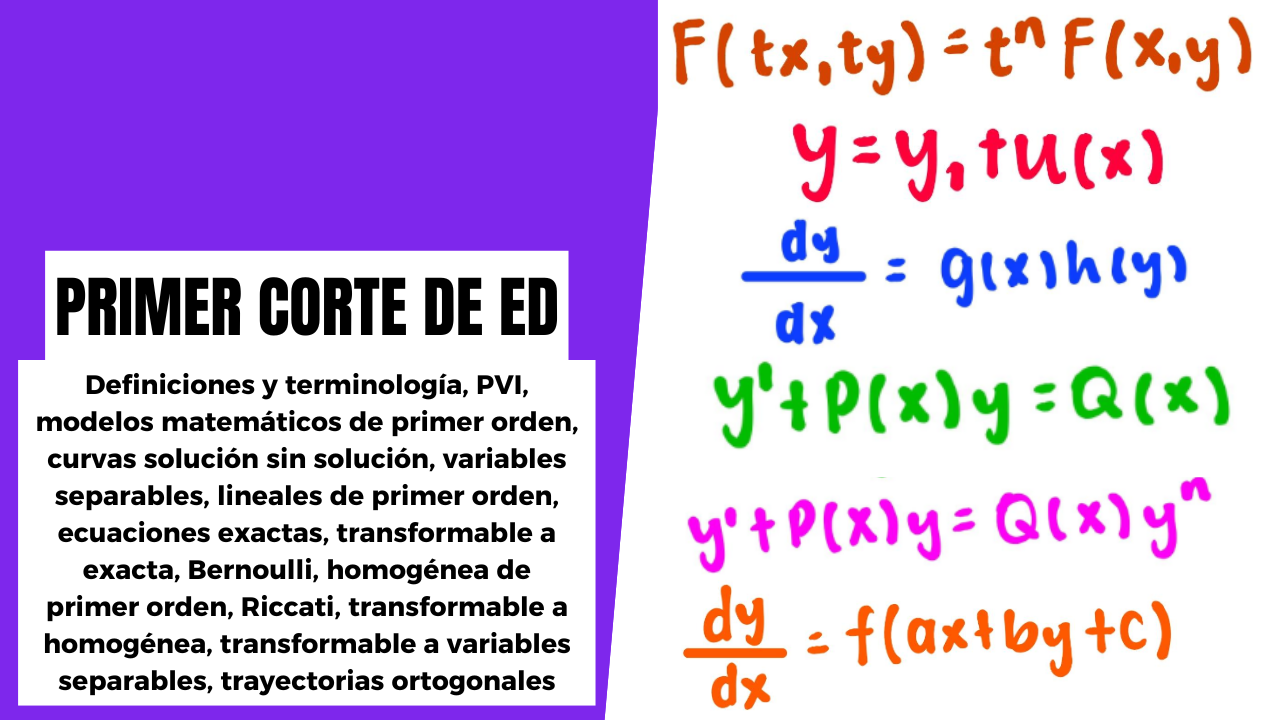 PRIMER CORTE DE ED
Definiciones y terminología, PVI,
modelos matemáticos de primer orden,
curvas solución sin solución, variables
separables, lineales de primer orden,
ecuaciones exactas, transformable a
exacta, Bernoulli, homogénea de
primer orden, Riccati, transformable a
homogénea, transformable a variables
separables, trayectorias ortogonales
F(tx,ty) = tⁿ F(x,y)
y = y₁ + u(x)
dy/dx = g(x)h(y)
y' + P(x)y = Q(x)
y' + P(x)y = Q(x)yⁿ
dy/dx = f(ax+by+c)